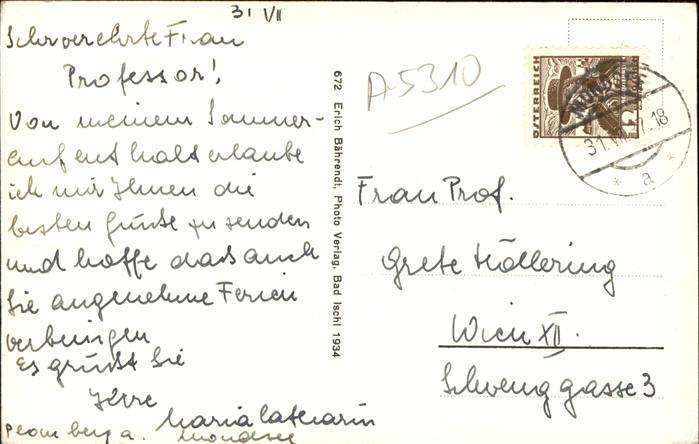 31 VII
Sehr verehrte Frau
Professor!
Von meinem Sommer-
aufenthalt erlaube
ich mir Ihnen die
besten Grüße zu senden
und hoffe daß auch
Sie angenehme Ferien
verbringen
Es grüßt Sie
Ihre
Maria
a. Mondsee
672 Erich Bährendt, Photo Verlag, Bad Ischl 1934
A-5310
ÖSTERREICH
31.VII. 18
* a *
Frau Prof.
Grete
Wien XII.
3